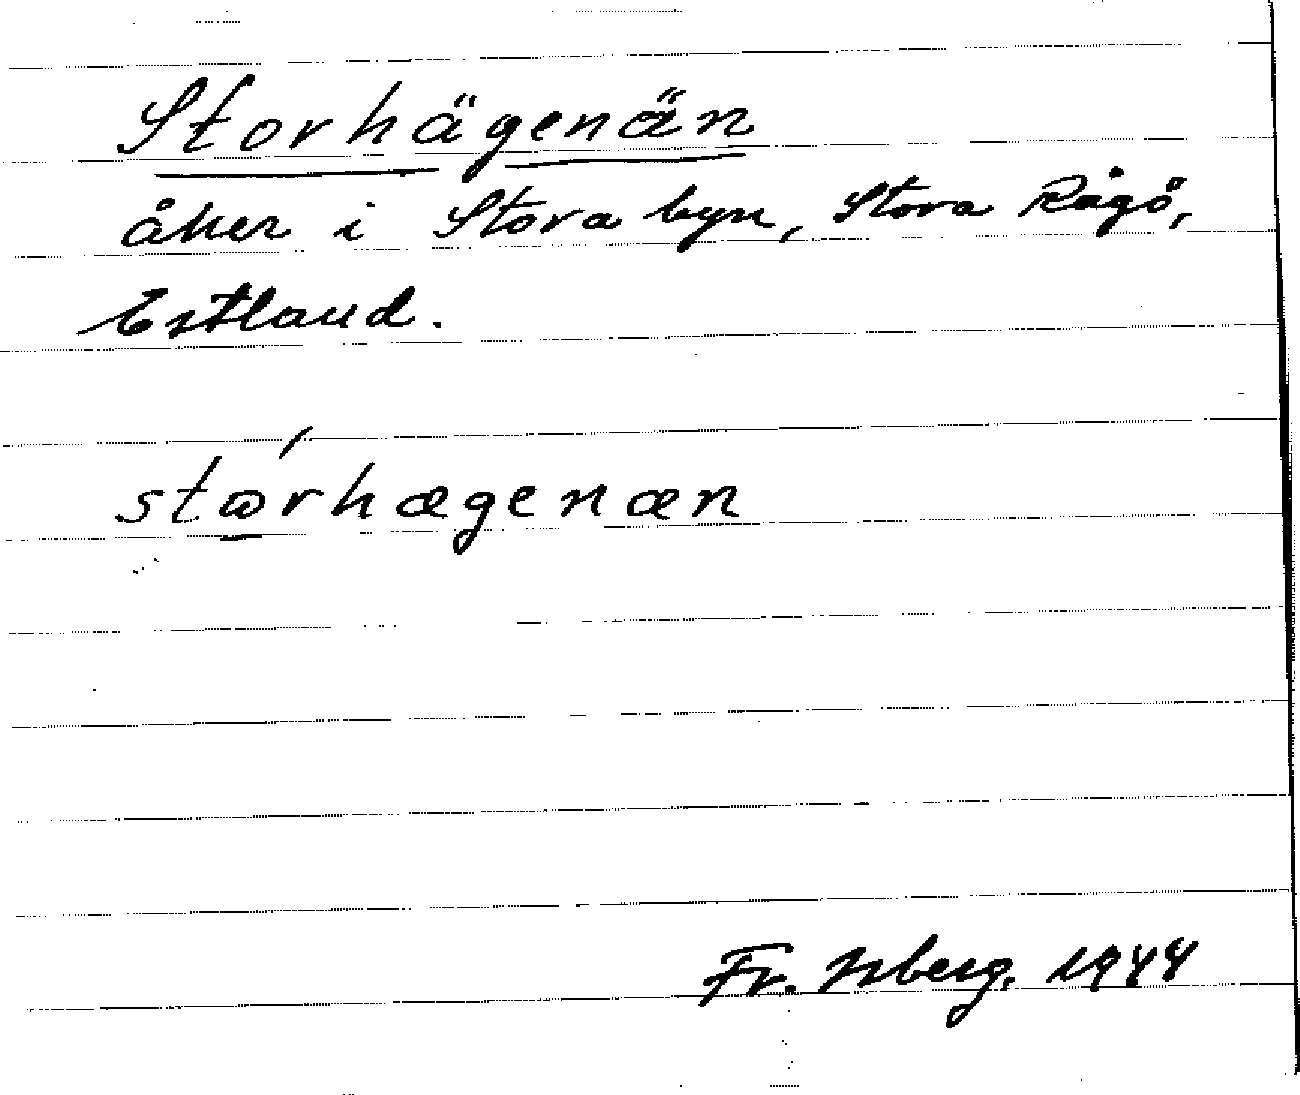 Storhägenän
åker i Stora byn, Stora Rågö,
Estland.
stώ̱rhægenæn
Fr. Isberg. 1944